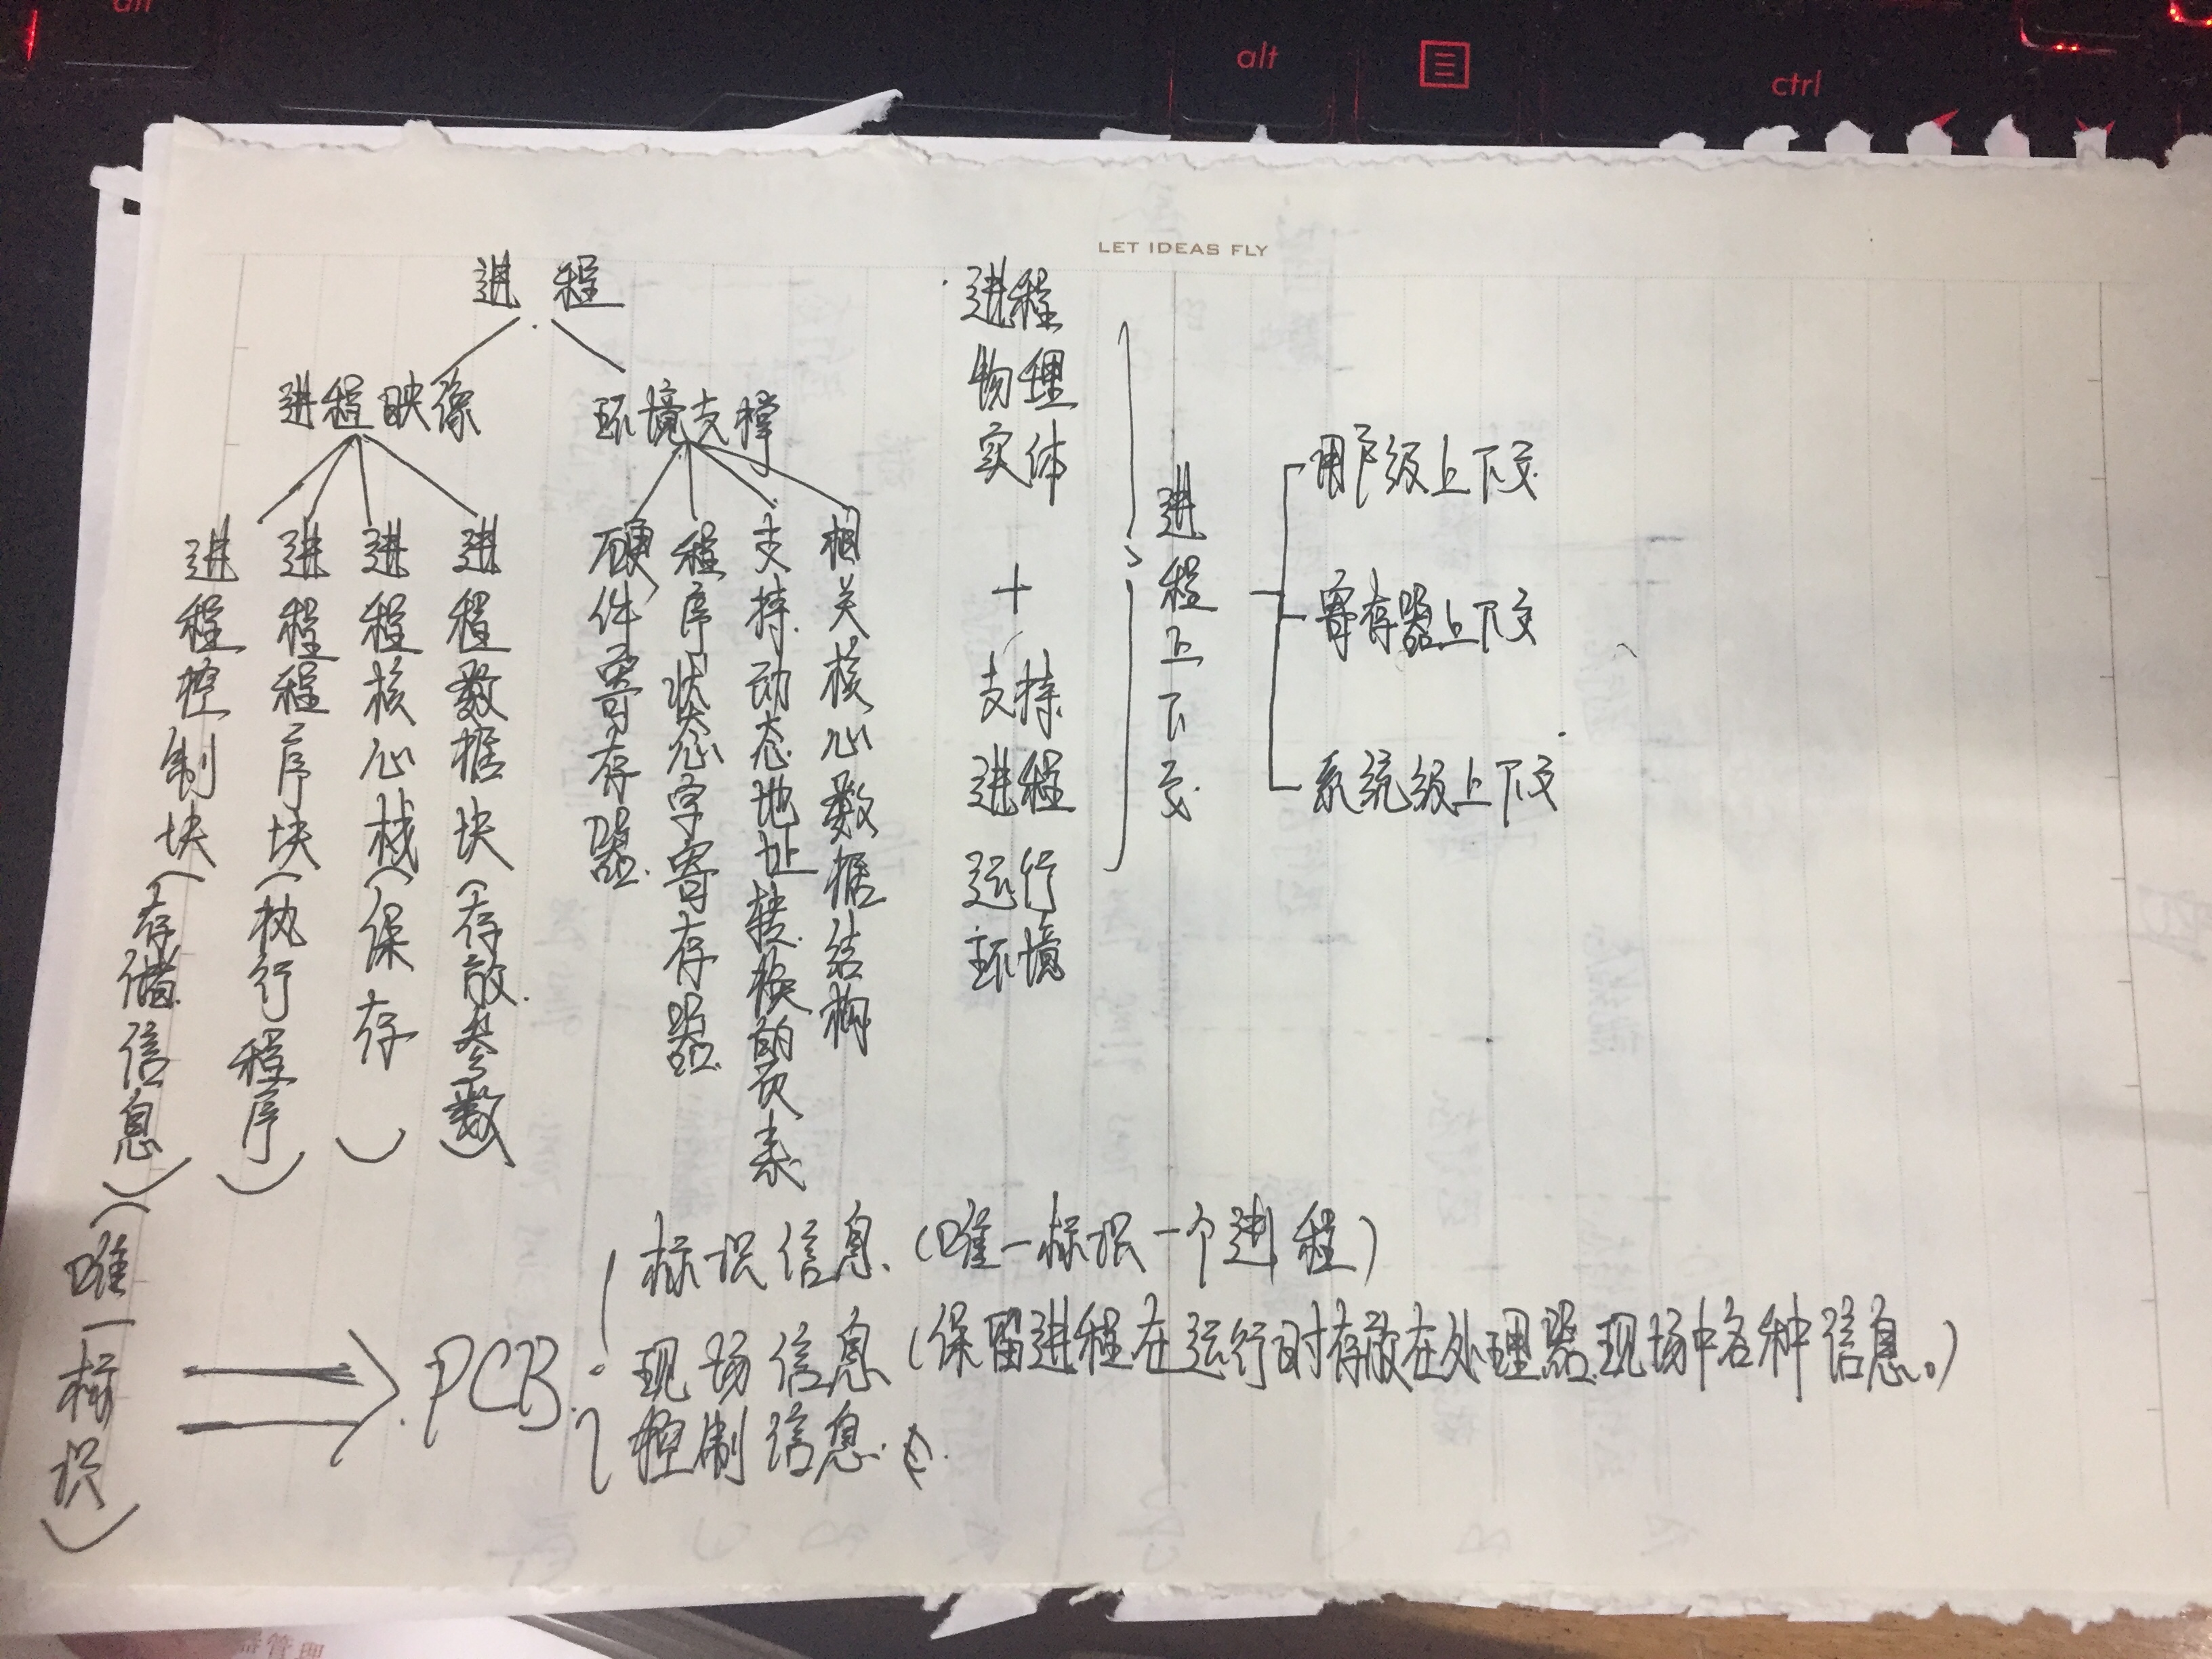 alt
alt
ctrl
LET IDEAS FLY
进程
进程映像
环境支撑
进程控制块(存储信息)(唯一标识)
进程程序块(执行程序)
进程核心栈(保存)
进程数据块(存放参数)
硬件寄存器
程序状态字寄存器
支持动态地址转换的页表
相关核心数据结构
进程
物理
实体
+
支持
进程
运行
环境
进程上下文
用户级上下文
寄存器上下文
系统级上下文
PCB
标识信息(唯一标识一个进程)
现场信息(保留进程在运行时存放在处理器现场中各种信息。)
控制信息
器管理